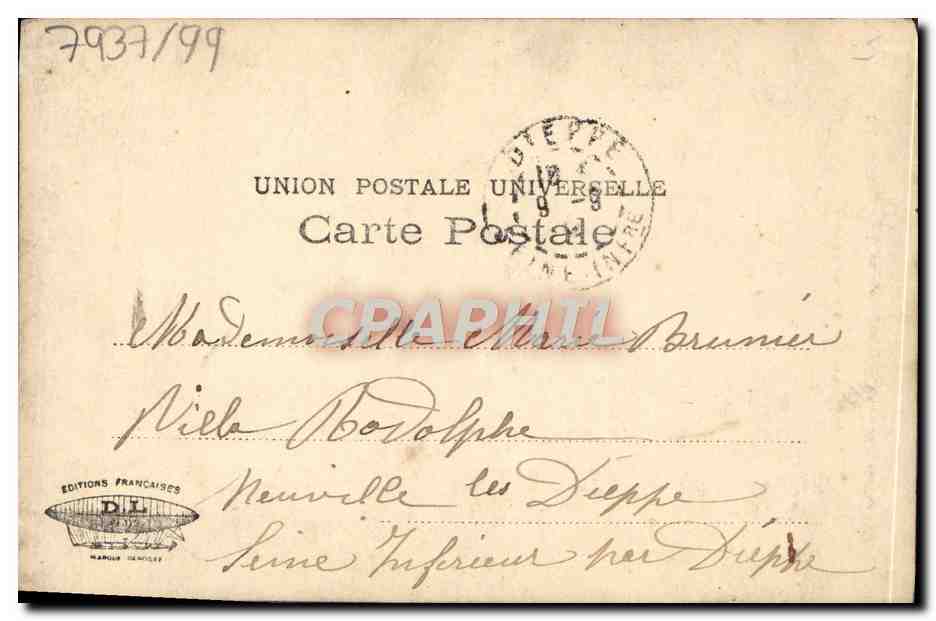 7937/99
DIEPPE
9 - 9
SEINE INFRE
UNION POSTALE UNIVERSELLE
Carte Postale
CPAPHIL
Mademoiselle Marie Brunier
Villa Rodolphe
Neuville les Dieppe
Seine Inferieur par Dieppe
EDITIONS FRANÇAISES
D.L
MARQUE DEPOSEE